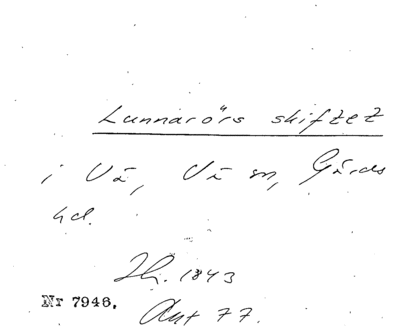 Lunnarörs skiftet
i Vä, Vä sn, Gärds
hd.
Jh. 1843
Nr 7946.
Avt 77.